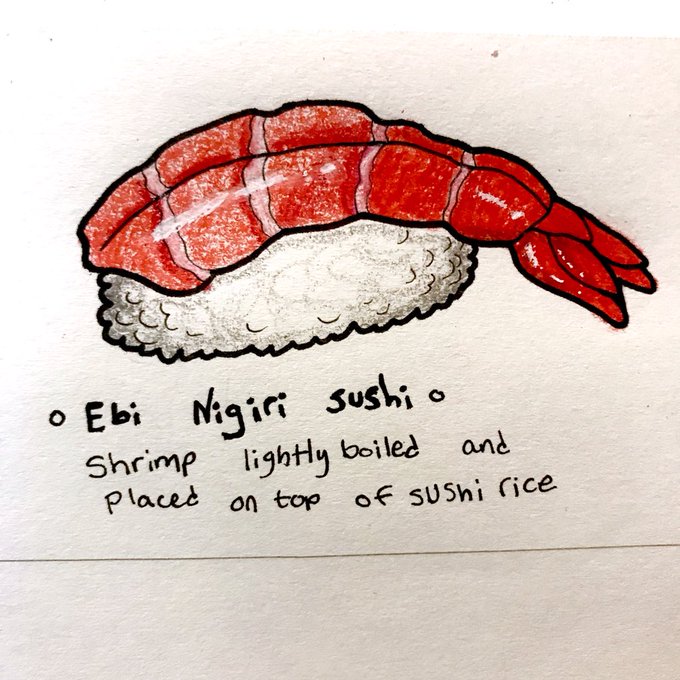 o Ebi Nigiri sushi o
Shrimp lightly boiled and
placed on top of sushi rice